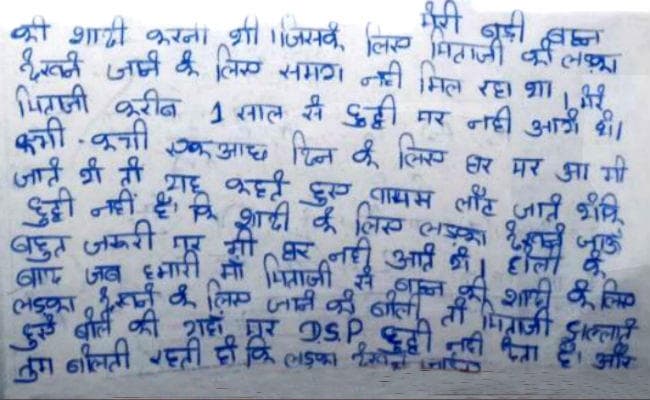 मेरी बड़ी बहन
की शादी करना थी। जिसके लिए पिताजी को लड़का
देखने जाने के लिए समय नहीं मिल रहा था। मेरे
पिताजी करीब 1 साल से छुट्टी पर नहीं आये थे।
कभी-कभी एक आध दिन के लिए घर पर आ भी
जाते थे तो यह कहते हुए वापस लौट जाते थे कि
छुट्टी नहीं है। कि शादी के लिए लड़का देखने जाऊँ
बहुत जरूरी पर भी घर नहीं आते थे। होली के
बाद जब हमारी माँ पिताजी से बहन की शादी के लिए
लड़का देखने के लिए जाने को बोली तो पिताजी झल्लाते
हुये बोले की यहाँ पर D.S.P छुट्टी नहीं देता है। और
तुम बोलती रहती हो कि लड़का देखने